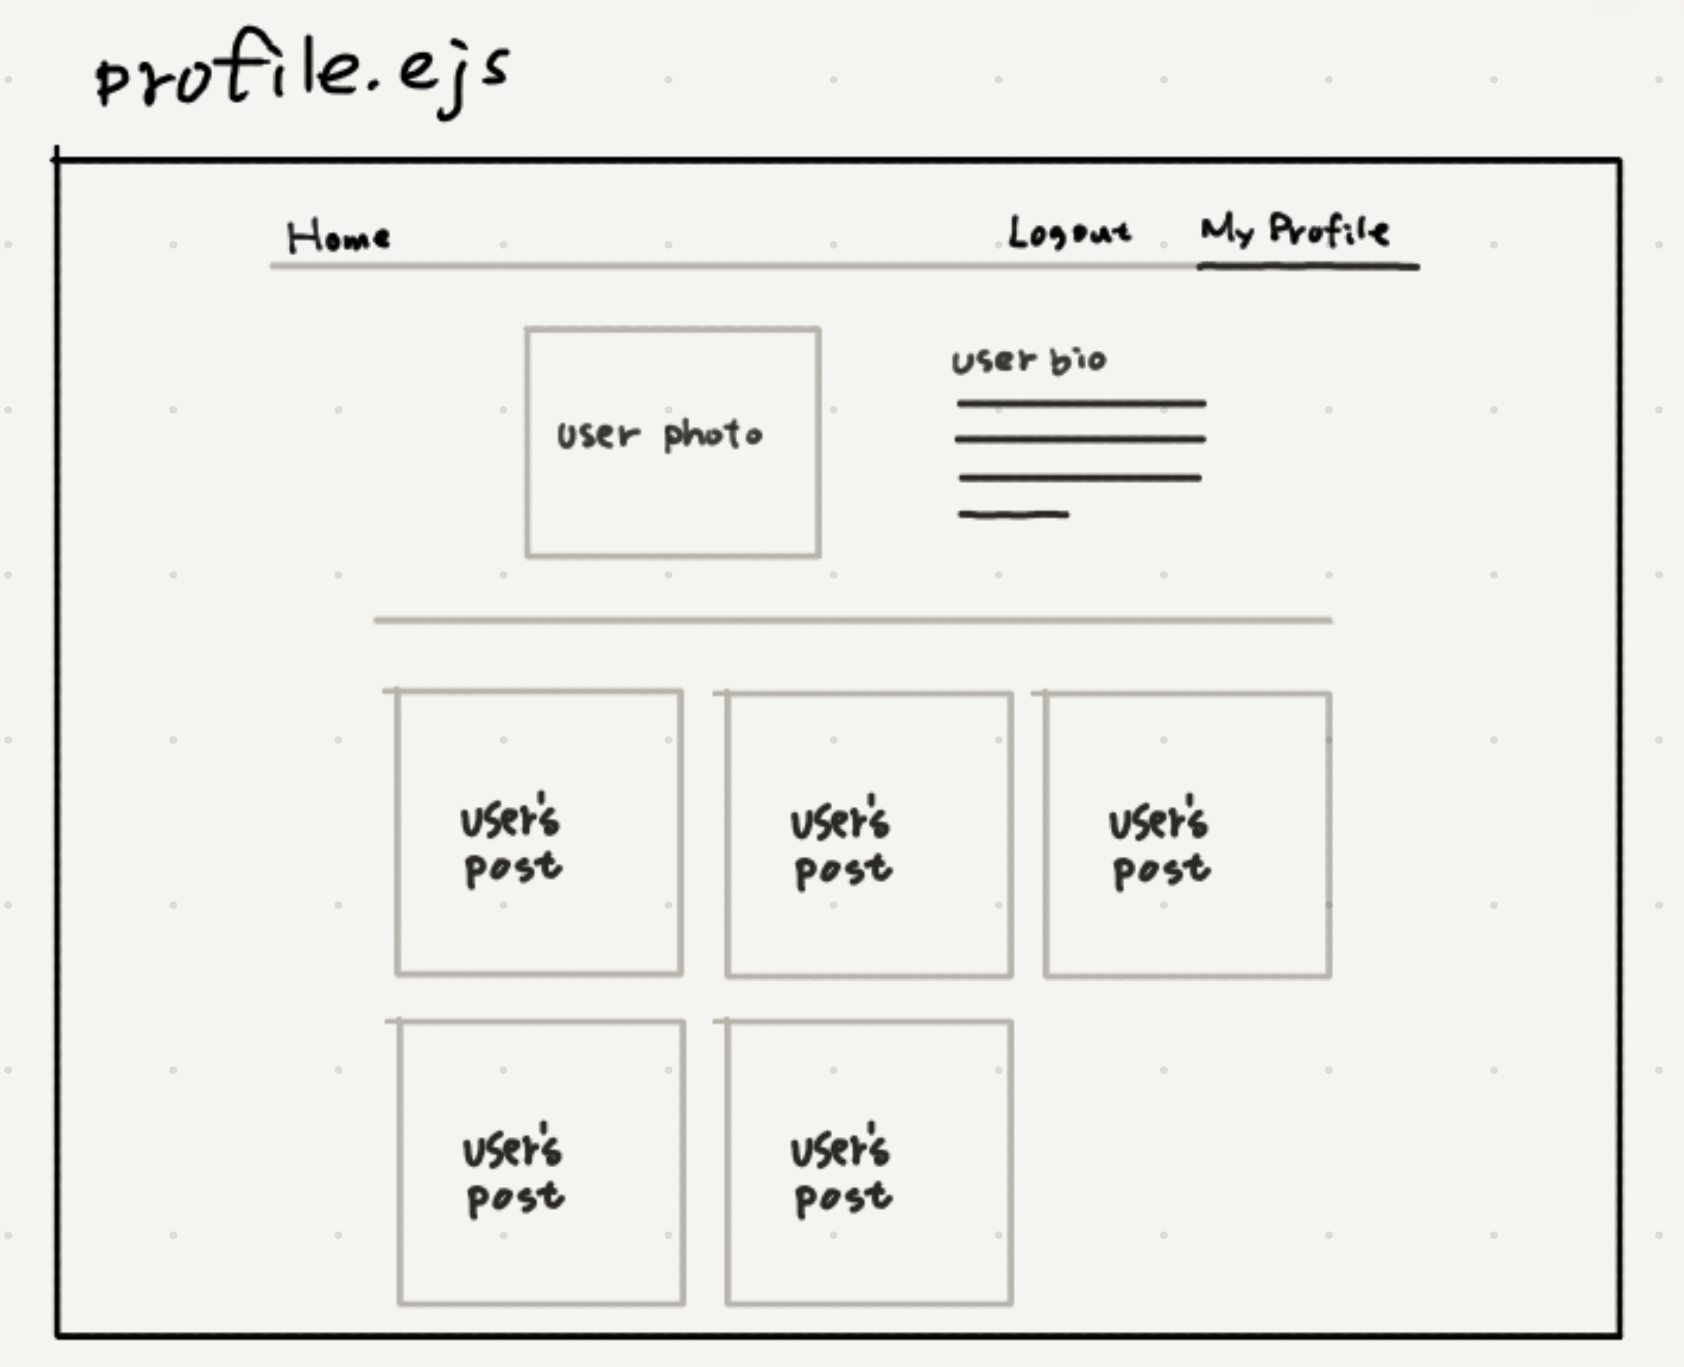 profile.ejs
Home Logout My Profile
user photo
user bio
user's
post
user's
post
user's
post
user's
post
user's
post